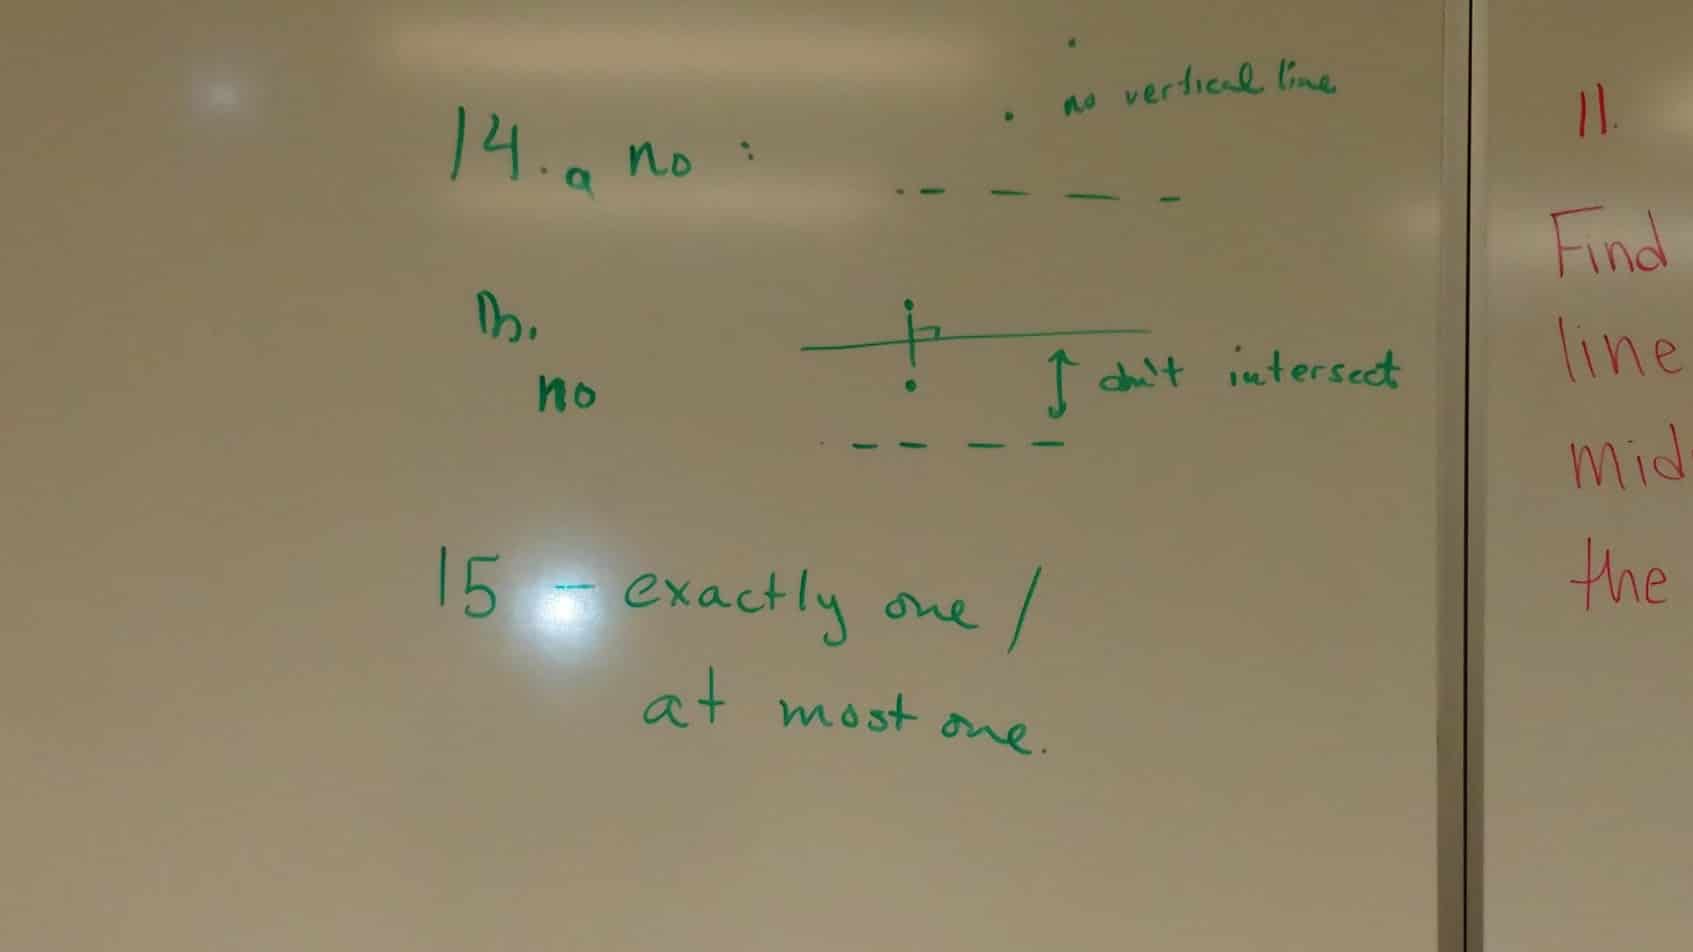 no vertical line
14. a no :
b.
no
don't intersect
15 - exactly one /
at most one.
11.
Find
line
mid
the